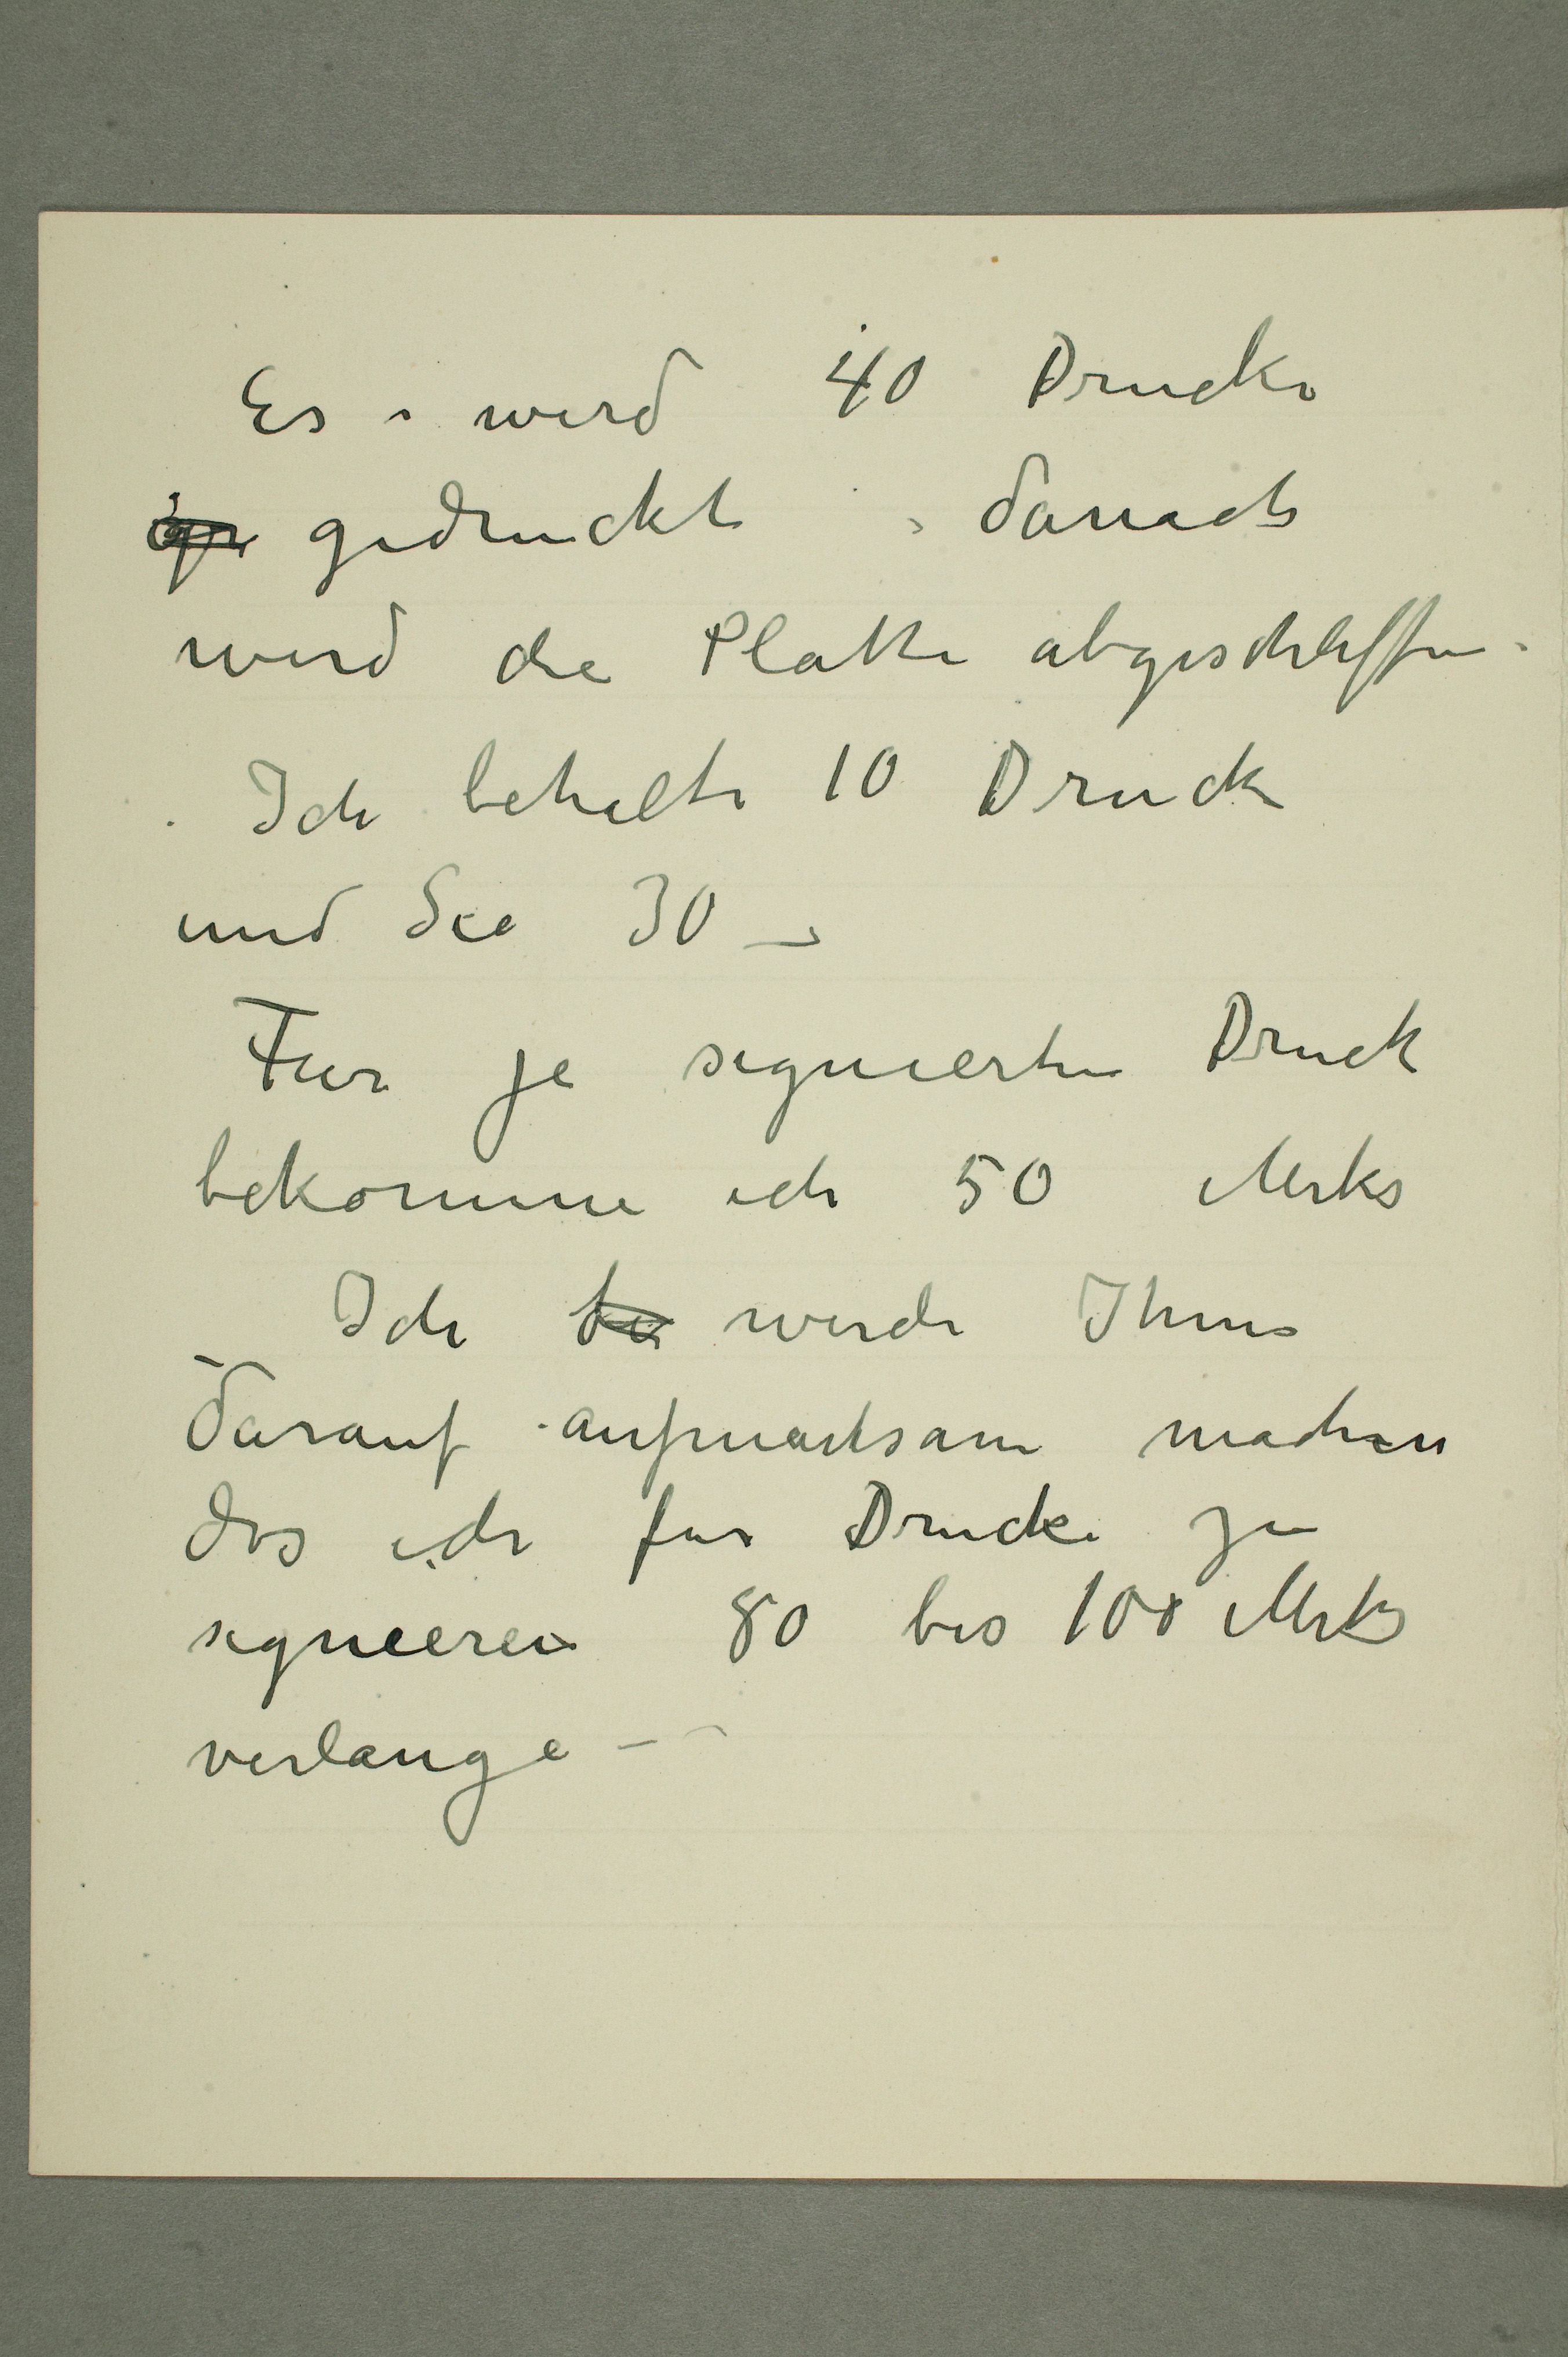 Es wird 40 Drucke
gedruckt danach
wird die Platte abgeschliffen.
Ich behalte 10 Drucke
und Sie 30 –
Fur je signierten Druck
bekomme ich 50 Mrks
Ich werde Ihnen
darauf aufmerksam machen
das ich fur Drucke zu
signieren 80 bis 100 Mrks
verlange –